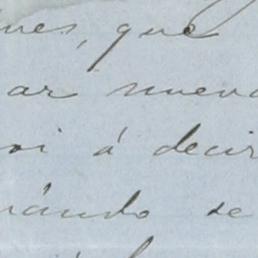 ues, que
ar nueva
oi á decir
uándo se